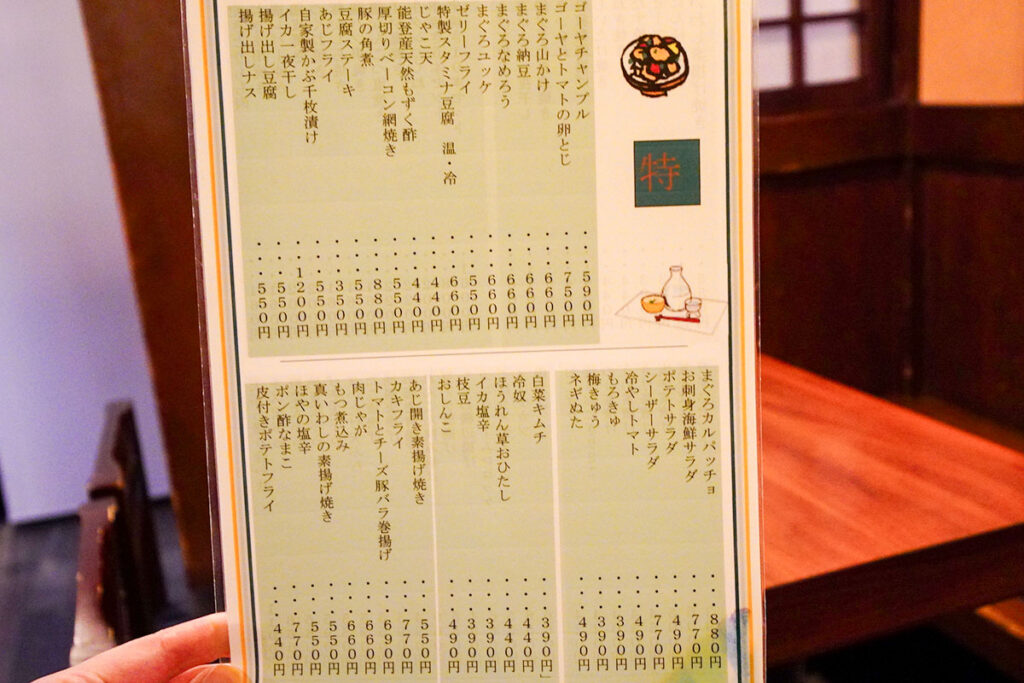 特
ゴーヤチャンプル・・・590円
ゴーヤとトマトの卵とじ・・・750円
まぐろ山かけ・・・660円
まぐろ納豆・・・660円
まぐろなめろう・・・660円
まぐろユッケ・・・660円
ゼリーフライ・・・550円
特製スタミナ豆腐 温・冷・・・660円
じゃこ天・・・440円
能登産天然もずく酢・・・440円
厚切りベーコン網焼き・・・550円
豚の角煮・・・880円
豆腐ステーキ・・・550円
あじフライ・・・350円
自家製かぶ千枚漬け・・・550円
イカ一夜干し・・・1200円
揚げ出し豆腐・・・550円
揚げ出しナス・・・550円
まぐろカルパッチョ・・・880円
お刺身海鮮サラダ・・・770円
ポテトサラダ・・・490円
シーザーサラダ・・・770円
冷やしトマト・・・490円
もろきゅ・・・390円
梅きゅう・・・390円
ネギぬた・・・490円
白菜キムチ・・・390円」
冷奴・・・440円
ほうれん草おひたし・・・440円
イカ塩辛・・・390円
枝豆・・・390円
おしんこ・・・490円
あじ開き素揚げ焼き・・・550円
カキフライ・・・770円
トマトとチーズ豚バラ巻揚げ・・・690円
肉じゃが・・・660円
もつ煮込み・・・660円
真いわしの素揚げ焼き・・・550円
ほやの塩辛・・・550円
ポン酢なまこ・・・770円
皮付きポテトフライ・・・440円